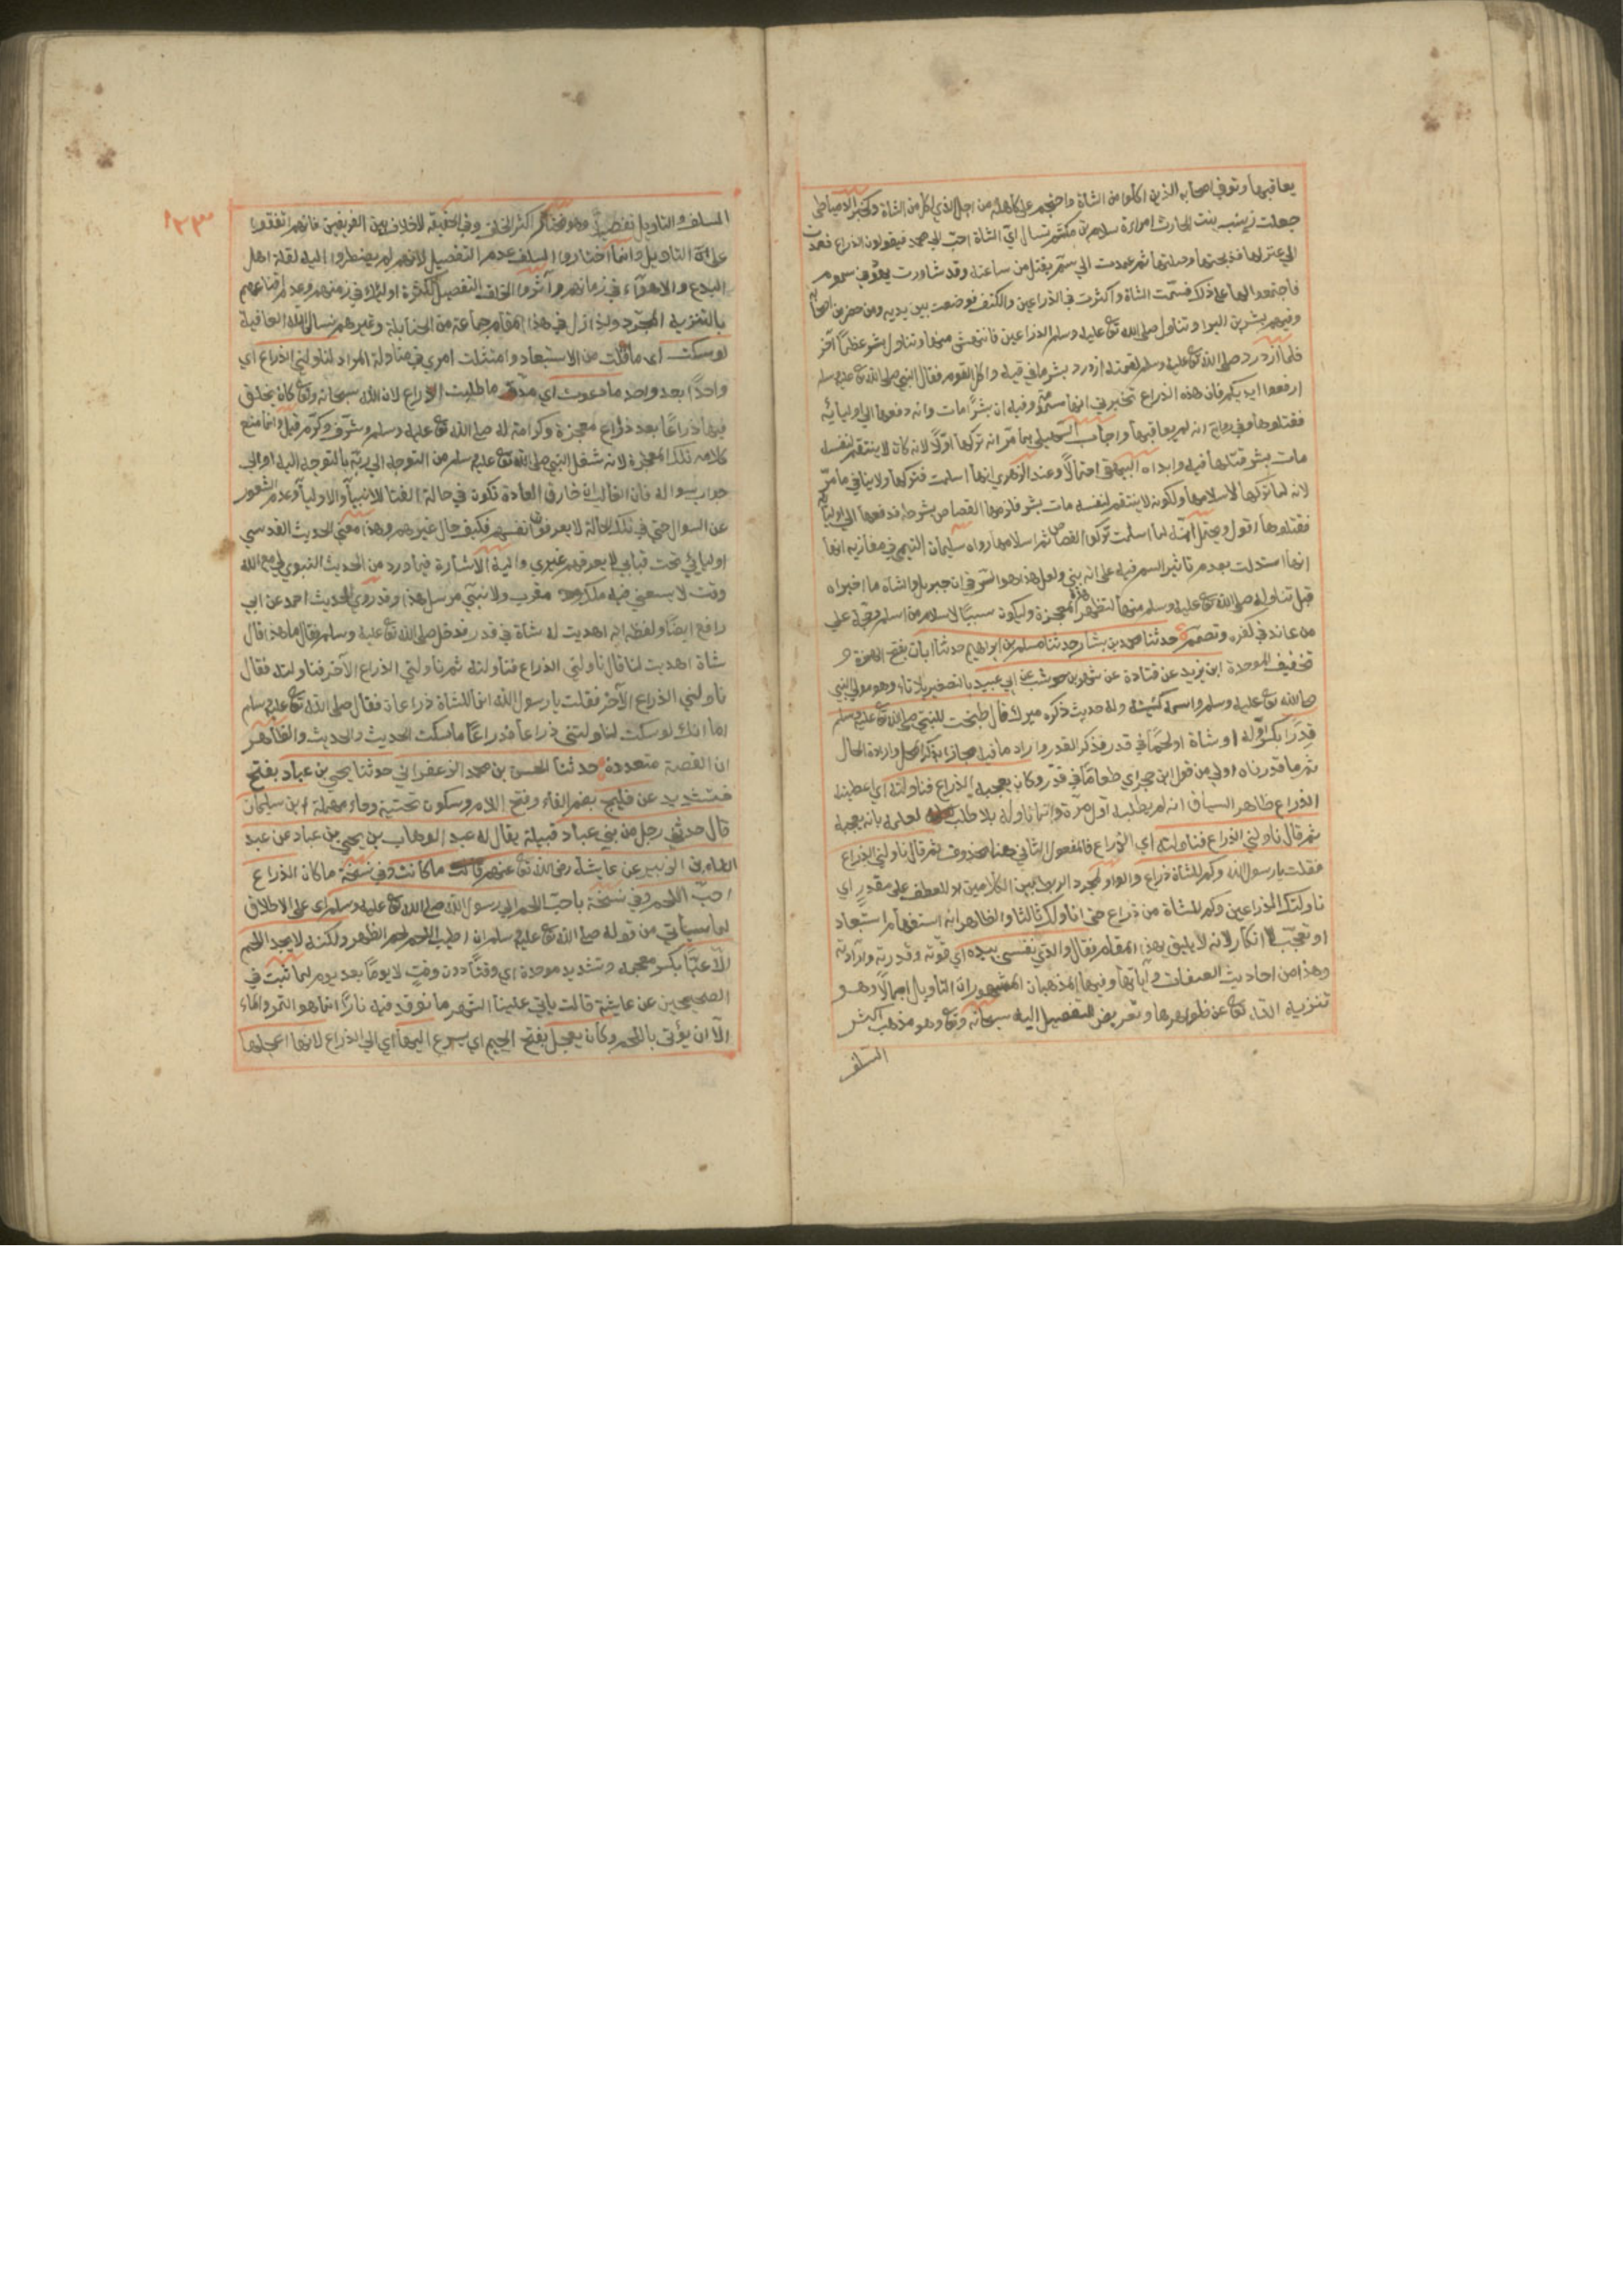 يعاقبها وتوفي اصحابه الذين اكلوا من الشاة واحتجم على كاهله من اجل الذي اكل من الشاة وخبر الدمياطي
جعلت زينب بنت الحارث امراة سلام بن مكشم تسال اي الشاة احب الى محمد فيقولون الذراع فعمدت
الى عنز لها فذبحتها وصلتها ثم عمدت الى سم يقتل من ساعته وقد شاورت يهود في سموم
فاجتمعوا لها على ذلك فسمّت الشاة واكثرت في الذراعين والكتف فوضعت بين يديه ومن حضر من اصحابه
وفيهم بشر بن البرا وتناول صلى الله تع عليه وسلم الذراعين فانتهش منها وتناول بشر عظما آخر
فلما ازدرد صلى الله تع عليه وسلم لقمته ازدرد بشر ما في فيه واكل القوم فقال النبي صلى الله تع عليه وسلم
ارفعوا ايديكم فان هذه الذراع تخبرني انها مسمومة وفيه ان بشرا مات وانه دفعها الى اوليائه
فقتلوها وفي رواية انه لم يعاقبها واجاب السهيلي بما مرّ انه تركها اوّلا لانه كان لا ينتقم لنفسه
مات بشر قتلها فيه وابداه البيهقي احتمالا وعند الزهري انها اسلمت فتركها ولا ينافي ما مرّ
لانه لما تركها لاسلامها ولكونه لا ينتقم لنفسه مات بشر فلزمها القصاص بشرطه فدفعها الى اوليائه
فقتلوها اقول ويحتمل انه لما اسلمت تركوا القصاص ثم اسلامها رواه سليمان التيمي في مغازيه انها
انها استدلت بعدم تاثير السم فيه على انه نبي ولعل هذا هو السر في ان جبريل والشاة ما اخبراه
قبل تناوله صلى الله تع عليه وسلم منها لتظهر هذه المعجزة وليكون سببا لاسلام من اسلم وحجة على
من عاند في كفره وتصمم حدثنا محمد بن بشار حدثنا مسلم بن ابراهيم حدثنا ابان بفتح الهمزة و
تخفيف الموحدة ابن يزيد عن قتادة عن شهر بن حوشب عن ابي عبيد بالتصغير بلا تاء وهو مولى النبي
صلى الله تع عليه وسلم واسمه كنيته وله حديث ذكره ميرك قال طبخت للنبي صلى الله تع عليه وسلم
قدرا بكسر اوّله اي شاة او لحما في قدر فذكر القدر واراد ما فيه مجازا بذكر المحل وارادة الحال
ثم ما قدرناه اولى من قول ابن حجر اي طعاما في قدر وكان يعجبه الذراع فناولته اي اعطيته
الذراع ظاهر السياق انه لم يطلبه اول مرة وانما ناوله بلا طلب لعلمه بانه يعجبه
ثم قال ناولني الذراع فناولته اي الذراع فالمفعول الثاني هنا محذوف ثم قال ناولني الذراع
فقلت يا رسول الله وكم للشاة ذراع والواو لمجرد الربط بين الكلامين او للعطف على مقدر اي
ناولتك الذراعين وكم للشاة من ذراع حتى اناولك ثالثا والظاهر انه استفهام استبعاد
او تعجّب لا انكار لانه لا يليق بهذا المقام فقال والذي نفسي بيده اي قوته وقدرته وارادته
وهذا من احاديث الصفات وآياتها وفيها المذهبان المشهوران التاويل اجمالا وهو
تنزيه الله تع عن ظواهرها وتفويض التفصيل اليه سبحانه وتع وهو مذهب اكثر
السلف
١٢٣
السلف والتاويل تفصيلا وهو مختار اكثر الخلف وفي الحقيقة لا خلاف بين الفريقين فانهم اتفقوا
على التاويل وانما اختاروا السلف عدم التفصيل لانهم لم يضطروا اليه لقلة اهل
البدع والاهواء في زمانهم وآثروا الخلف التفصيل لكثرة اولئك في زمنهم وعدم اقناعهم
بالتنزيه المجرد ولذا زل في هذا المقام جماعة من الحنابلة وغيرهم نسال الله العافية
لو سكت اي ما قلت من الاستبعاد وامتثلت امري في مناولة المراد لناولتني الذراع اي
واحدا بعد واحد ما دعوت اي مدة ما طلبت الذراع لان الله سبحانه وتع كان يخلق
فيها ذراعا بعد ذراع معجزة وكرامة له صلى الله تع عليه وسلم وشرف وكرم قيل وانما منع
كلامه تلك المعجزة لانه شغل النبي صلى الله تع عليه وسلم من التوجه الى ربه بالتوجه اليه او الى
جواب سواله فان الغالب ان خارق العادة تكون في حالة الفنا للانبيا والاوليا وعدم الشعور
عن السوال حتى في تلك الحالة لا يعرفون انفسهم فكيف حال غيرهم وهذا معنى الحديث القدسي
اوليائي تحت قبابي لا يعرفهم غيري واليه الاشارة فيما ورد من الحديث النبوي لي مع الله
وقت لا يسعني فيه ملك مقرب ولا نبي مرسل هذا وقد روي الحديث احمد عن ابي
رافع ايضا ولفظه انه اهديت له شاة في قدر فدخل صلى الله تع عليه وسلم فقال ما هذا قال
شاة اهديت لنا قال ناولني الذراع فناولته ثم ناولني الذراع الآخر فناولته فقال
ناولني الذراع الآخر فقلت يا رسول الله انما للشاة ذراعان فقال صلى الله تع عليه وسلم
اما انك لو سكت لناولتني ذراعا فذراعا ما سكت الحديث والحديث والظاهر
ان القصة متعددة حدثنا الحسن بن محمد الزعفراني حدثنا يحيى بن عباد بفتح
فتشديد عن فليح بضم الفاء وفتح اللام وسكون تحتية وحاء مهملة ابن سليمان
قال حدثني رجل من بني عباد قبيلة يقال له عبد الوهاب بن يحيى بن عباد عن عبد
الله بن الزبير عن عايشة رضي الله تع عنهم قالت ما كانت وفي نسخة ما كان الذراع
احبّ اللحم وفي نسخة باحبّ اللحم الى رسول الله صلى الله تع عليه وسلم اي على الاطلاق
لما سياتي من قوله صلى الله تع عليه وسلم ان اطيب اللحم لحم الظهر ولكنه لا يجد اللحم
الّا غبّا بكسر معجمه وتشديد موحدة اي وقتا دون وقت لا يوما بعد يوم لما ثبت في
الصحيحين عن عايشة قالت ياتي علينا الشهر ما نوقد فيه نارا انما هو التمر والماء
الّا ان يؤتى باللحم وكان يعجل بفتح الجيم اي يسرع اليها اي الى الذراع لانها اعجلها